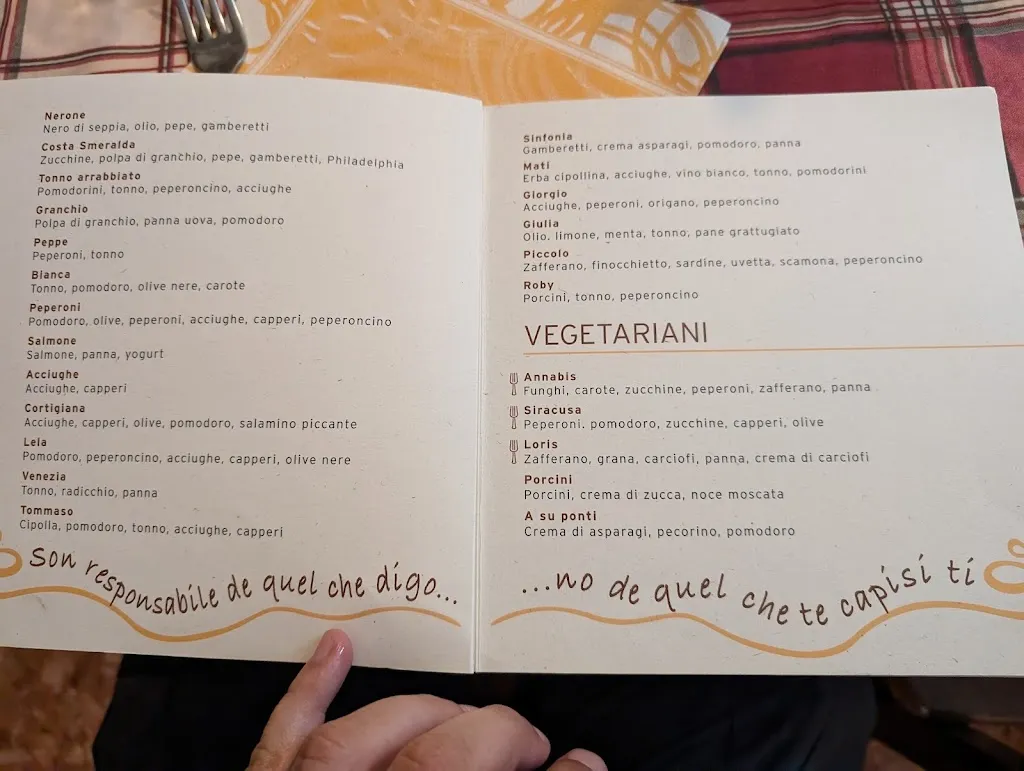 Nerone
Nero di seppia, olio, pepe, gamberetti
Costa Smeralda
Zucchine, polpa di granchio, pepe, gamberetti, Philadelphia
Tonno arrabbiato
Pomodorini, tonno, peperoncino, acciughe
Granchio
Polpa di granchio, panna uova, pomodoro
Peppe
Peperoni, tonno
Bianca
Tonno, pomodoro, olive nere, carote
Peperoni
Pomodoro, olive, peperoni, acciughe, capperi, peperoncino
Salmone
Salmone, panna, yogurt
Acciughe
Acciughe, capperi
Cortigiana
Acciughe, capperi, olive, pomodoro, salamino piccante
Lela
Pomodoro, peperoncino, acciughe, capperi, olive nere
Venezia
Tonno, radicchio, panna
Tommaso
Cipolla, pomodoro, tonno, acciughe, capperi
Son responsabile de quel che digo...
Sinfonia
Gamberetti, crema asparagi, pomodoro, panna
Mati
Erba cipollina, acciughe, vino bianco, tonno, pomodorini
Giorgio
Acciughe, peperoni, origano, peperoncino
Giulia
Olio. limone, menta, tonno, pane grattugiato
Piccolo
Zafferano, finocchietto, sardine, uvetta, scamona, peperoncino
Roby
Porcini, tonno, peperoncino
VEGETARIANI
Annabis
Funghi, carote, zucchine, peperoni, zafferano, panna
Siracusa
Peperoni. pomodoro, zucchine, capperi, olive
Loris
Zafferano, grana, carciofi, panna, crema di carciofi
Porcini
Porcini, crema di zucca, noce moscata
A su ponti
Crema di asparagi, pecorino, pomodoro
...no de quel che te capisi ti